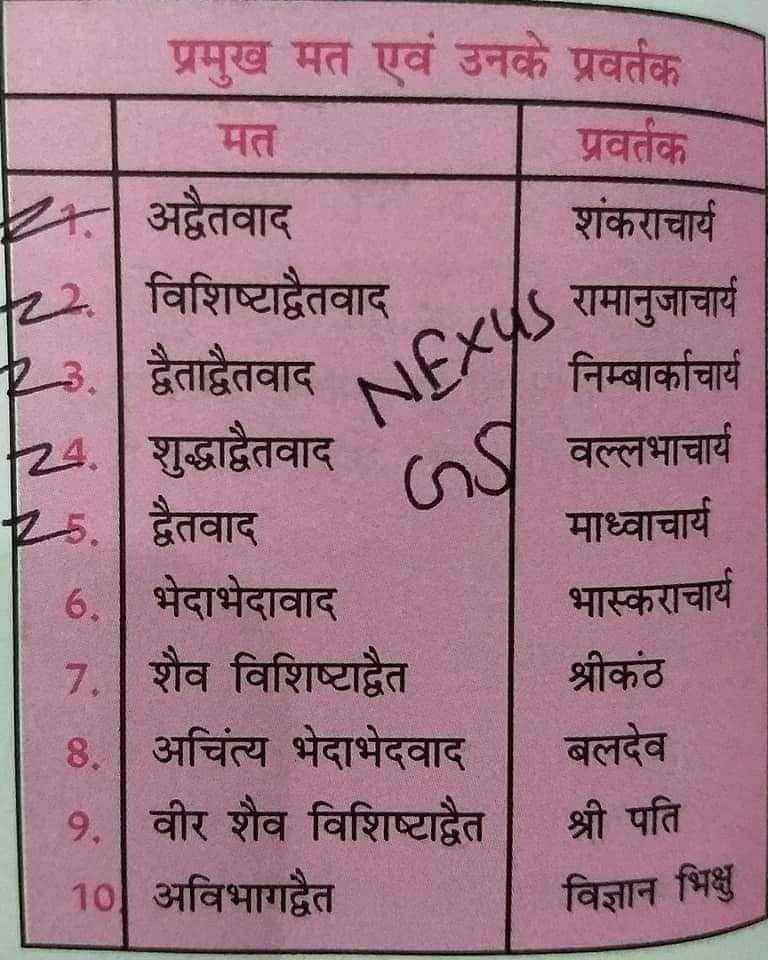 प्रमुख मत एवं उनके प्रवर्तक
मत प्रवर्तक
1. अद्वैतवाद शंकराचार्य
2. विशिष्टाद्वैतवाद रामानुजाचार्य
3. द्वैताद्वैतवाद निम्बार्काचार्य
NEXUS
4. शुद्धाद्वैतवाद वल्लभाचार्य
GS
5. द्वैतवाद माध्वाचार्य
6. भेदाभेदावाद भास्कराचार्य
7. शैव विशिष्टाद्वैत श्रीकंठ
8. अचिंत्य भेदाभेदवाद बलदेव
9. वीर शैव विशिष्टाद्वैत श्री पति
10 अविभागद्वैत विज्ञान भिक्षु